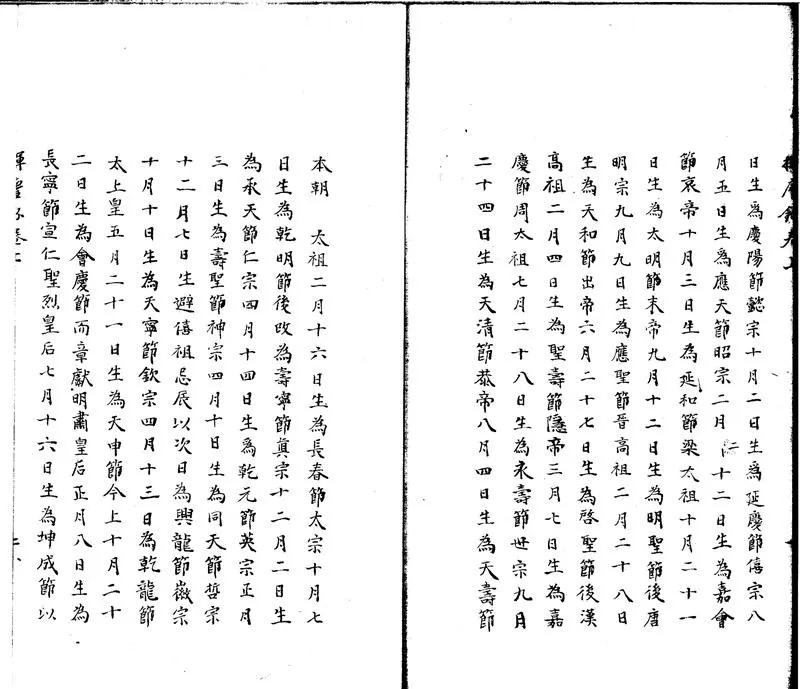 揮麈錄卷上
日生爲慶陽節懿宗十月二日生爲延慶節僖宗八
月五日生爲應天節昭宗二月二十二日生為嘉會
節哀帝十月三日生為延和節梁太祖十月二十一
日生為太明節末帝九月十二日生為明聖節後唐
明宗九月九日生為應聖節晉高祖二月二十八日
生為天和節出帝六月二十七日生為啓聖節後漢
高祖二月四日生為聖壽節隱帝三月七日生為嘉
慶節周太祖七月二十八日生為永壽節世宗九月
二十四日生為天清節恭帝八月四日生為天壽節
本朝 太祖二月十六日生為長春節太宗十月七
日生為乾明節後改為壽寧節真宗十二月二日生
為承天節仁宗四月十四日生爲乾元節英宗正月
三日生為壽聖節神宗四月十日生為同天節哲宗
十二月七日生避僖祖忌辰以次日為興龍節徽宗
十月十日生為天寧節欽宗四月十三日為乾龍節
太上皇五月二十一日生為天申節今上十月二十
二日生為會慶節而章獻明肅皇后正月八日生為
長寧節宣仁聖烈皇后七月十六日生為坤成節以
揮麈錄卷上